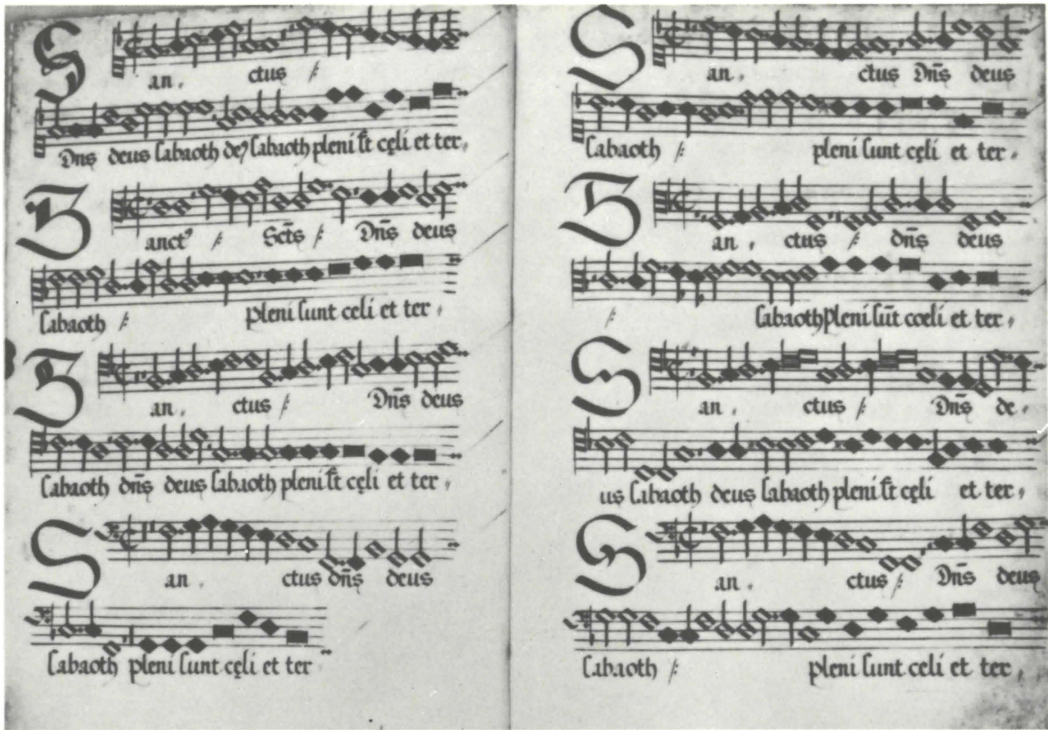 San. ctus ÷
Dns deus sabaoth de9 sabaoth pleni st cęli et ter,
Sanct9 ÷ Scts ÷ Dns deus
sabaoth ÷ pleni sunt celi et ter,
San. ctus ÷ Dns deus
sabaoth dns deus sabaoth pleni st cęli et ter,
San. ctus dns deus
sabaoth pleni sunt cęli et ter
San. ctus Dns deus
sabaoth ÷ pleni sunt cęli et ter,
San. ctus ÷ dns deus
÷ sabaoth pleni sūt coeli et ter,
San. ctus ÷ Dns de-
us sabaoth deus sabaoth pleni st cęli et ter,
San. ctus ÷ Dns deus
sabaoth ÷ pleni sunt celi et ter,